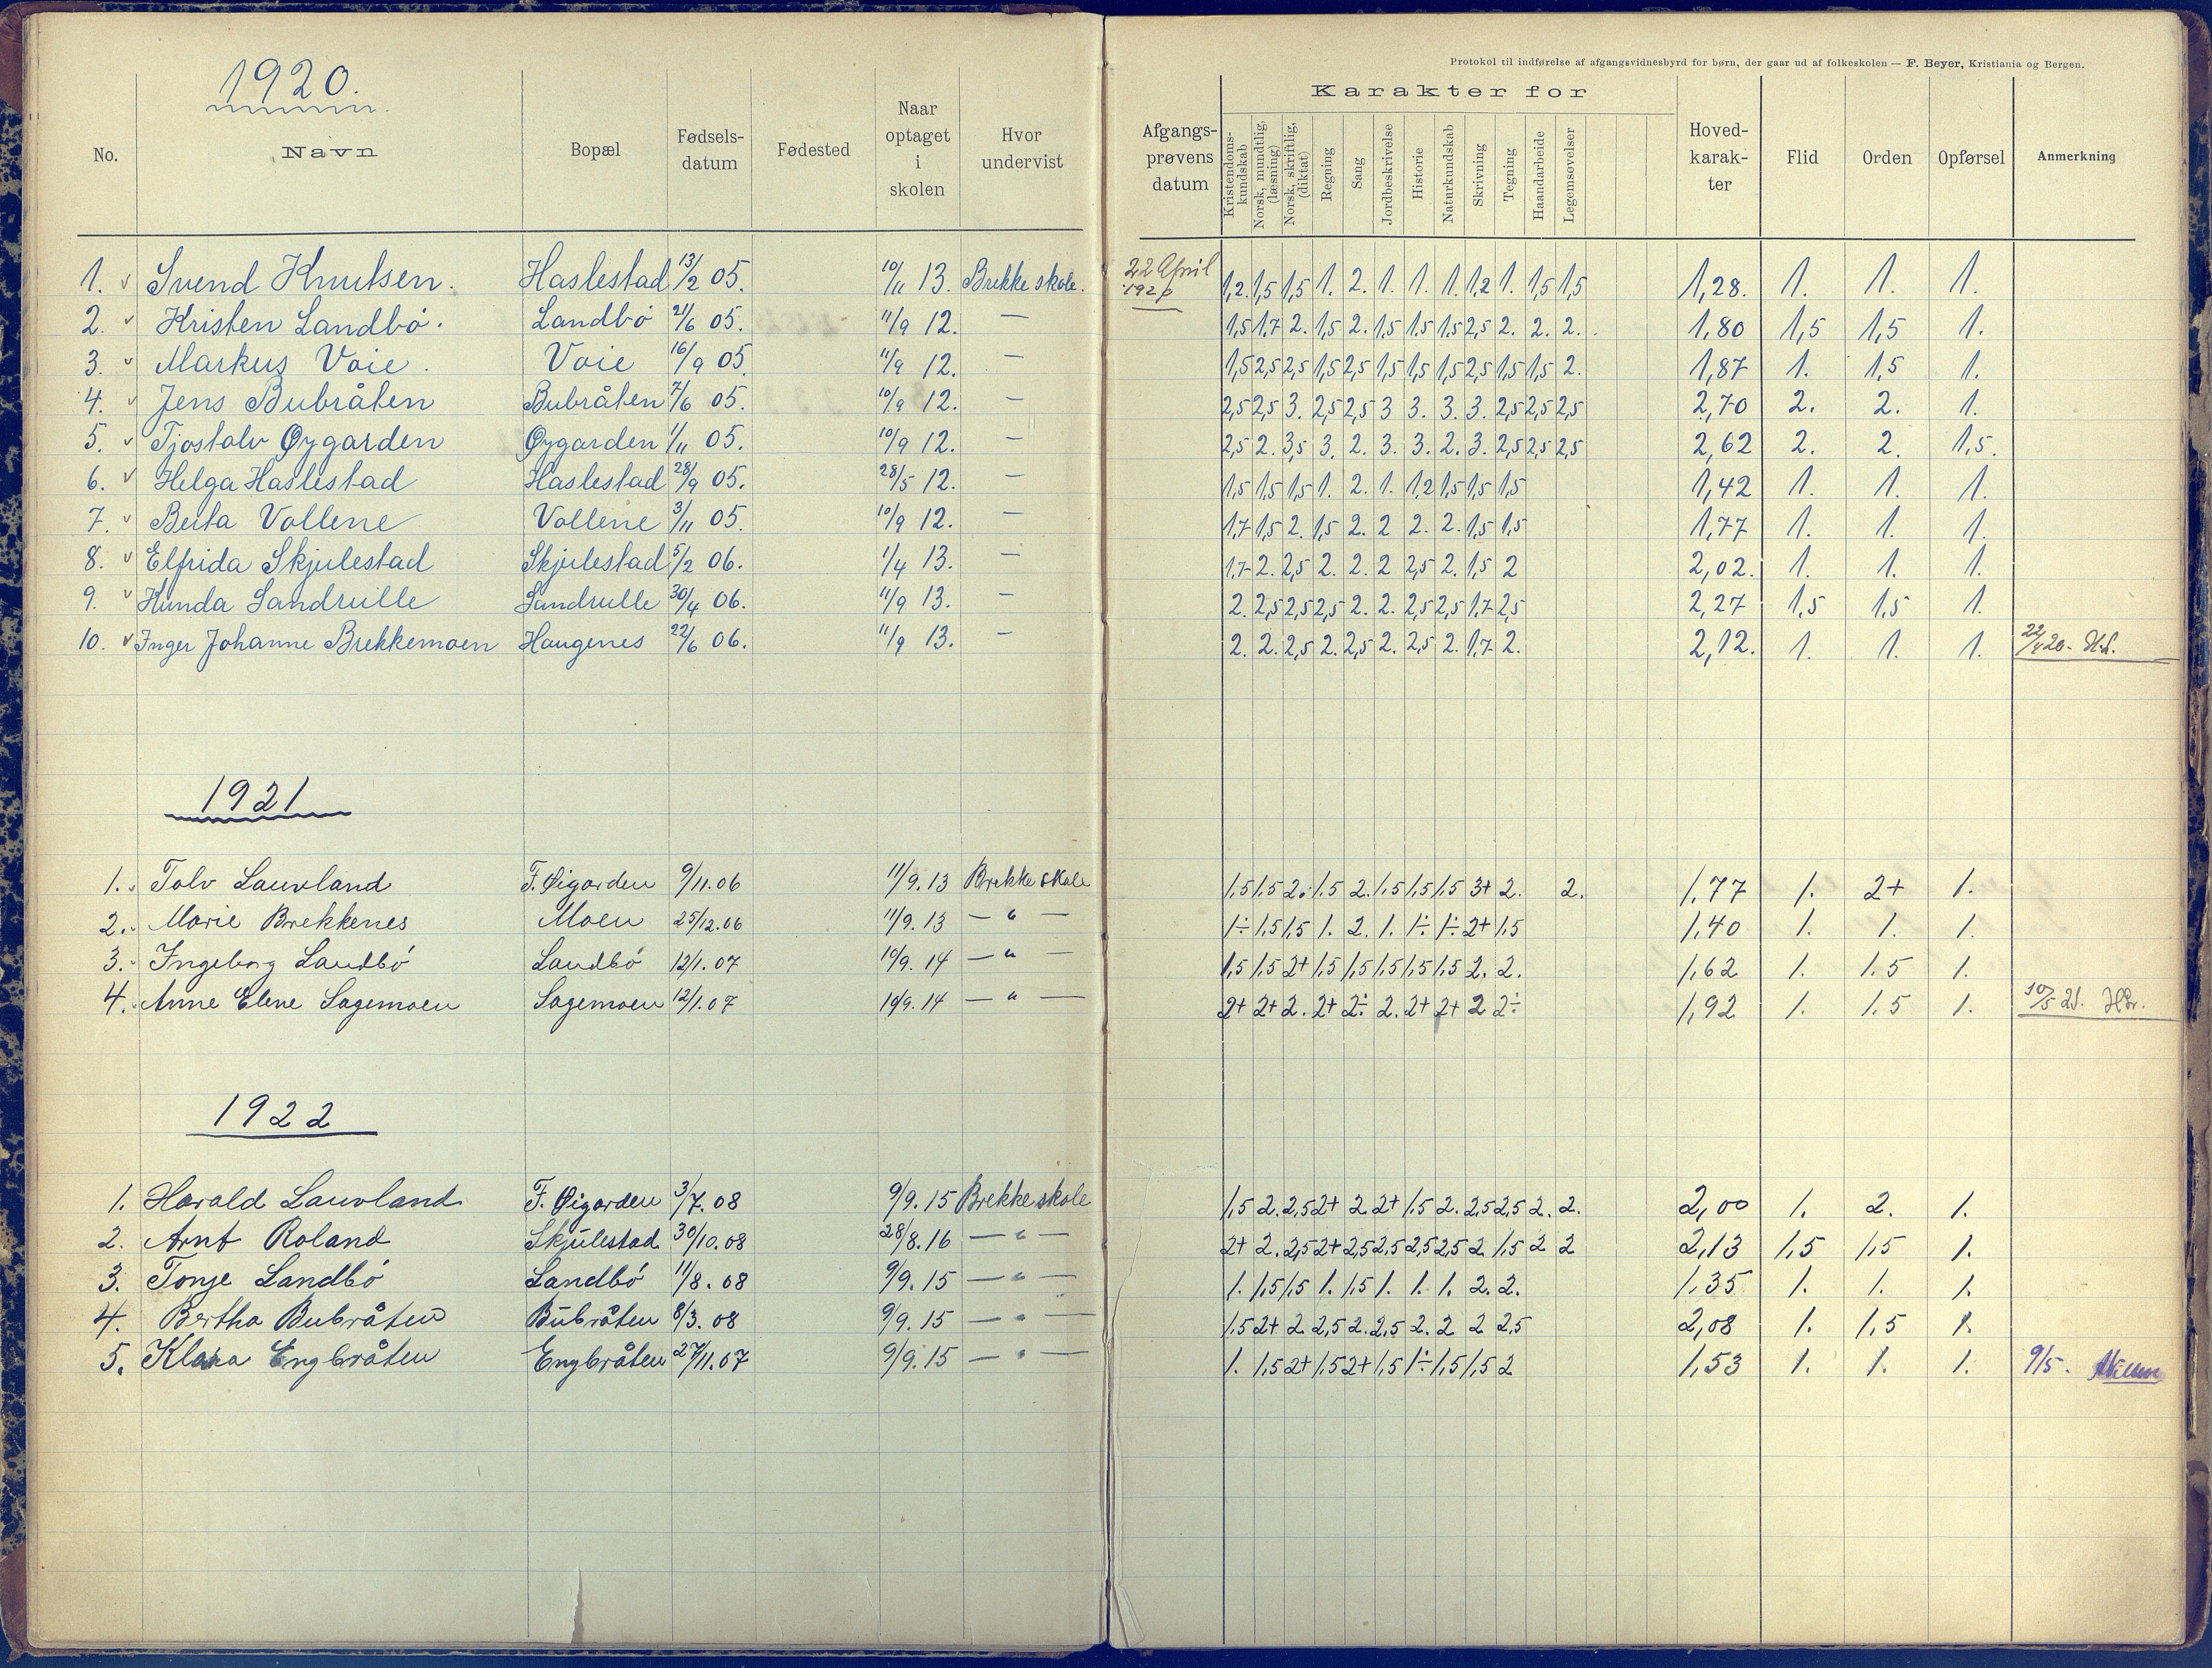 1920.
No. Navn Bopæl Fødsels-datum Fødested Naar optaget i skolen Hvor undervist
1. Svend Knutsen. Haslestad 13/2 05. 10/11 13. Brekke skole.
2. Kristen Landbö. Landbö 21/6 05. 11/9 12. —
3. Markus Voie. Voie 16/9 05. 11/9 12. —
4. Jens Bubråten Bubråten 7/6 05. 10/9 12. —
5. Tjostolv Øygarden Øygarden 1/11 05. 10/9 12. —
6. Helga Haslestad Haslestad 28/9 05. 28/5 12. —
7. Berta Vollene Vollene 3/11 05. 10/9 12. —
8. Elfrida Skjulestad Skjulestad 5/2 06. 1/4 13. —
9. Kunda Sandrulle Sandrulle 30/4 06. 11/9 13. —
10. Inger Johanne Brekkemoen Haugenes 22/6 06. 11/9 13. —
1921
1. Talv Lauvland F. Øigarden 9/11.06 11/9.13 Brekke skole
2. Marie Brekkenes Moen 25/12.06 11/9.13 — " —
3. Ingeborg Landbó Landbó 12/1.07 10/9.14 — " —
4. Anne Elene Sagemoen Sagemoen 12/1.07 10/9.14 — " —
1922
1. Harald Lauvland F. Øigarden 3/7.08 9/9.15 Brekke skole
2. Arnt Roland Skjulestad 30/10.08 28/8.16 — " —
3. Tonje Landbó Landbó 11/8.08 9/9.15 — " —
4. Bertha Bubråten Bubråten 8/3.08 9/9.15 — " —
5. Klara Engbråten Engbråten 27/11.07 9/9.15 — " —
Protokol til indførelse af afgangsvidnesbyrd for børn, der gaar ud af folkeskolen — F. Beyer, Kristiania og Bergen.
Karakter for
Afgangs-prøvens datum Kristendoms-kundskab Norsk, mundtlig, (læsning) Norsk, skriftlig, (diktat) Regning Sang Jordbeskrivelse Historie Naturkundskab Skrivning Tegning Haandarbeide Legemsøvelser Hoved-karak-ter Flid Orden Opførsel Anmerkning
22 April 1920 1,2. 1,5 1,5 1. 2. 1. 1. 1. 1,2 1. 1,5 1,5 1,28. 1. 1. 1.
1,5 1,7 2. 1,5 2. 1,5 1,5 1,5 2,5 2. 2. 2. 1,80 1,5 1,5 1.
1,5 2,5 2,5 1,5 2,5 1,5 1,5 1,5 2,5 1,5 1,5 2. 1,87 1. 1,5 1.
2,5 2,5 3. 2,5 2,5 3 3. 3. 3. 2,5 2,5 2,5 2,70 2. 2. 1.
2,5 2. 3,5 3. 2. 3. 3. 2. 3. 2,5 2,5 2,5 2,62 2. 2. 1,5.
1,5 1,5 1,5 1. 2. 1. 1,2 1,5 1,5 1,5 1,42 1. 1. 1.
1,7 1,5 2. 1,5 2. 2 2. 2. 1,5 1,5 1,77 1. 1. 1.
1,7 2. 2,5 2. 2. 2 2,5 2. 1,5 2 2,02. 1. 1. 1.
2. 2,5 2,5 2,5 2. 2. 2,5 2,5 1,7 2,5 2,27 1,5 1,5 1.
2. 2. 2,5 2. 2,5 2. 2,5 2. 1,7 2. 2,12. 1. 1. 1. 22/4 20.
1,5 1,5 2. 1.5 2. 1.5 1,5 1,5 3+ 2. 2. 1,77 1. 2+ 1.
1÷ 1,5 1,5 1. 2. 1. 1÷ 1÷ 2+ 1.5 1,40 1. 1. 1.
1,5 1,5 2+ 1,5 1,5 1,5 1,5 1,5 2. 2. 1,62 1. 1.5 1.
2+ 2+ 2. 2+ 2÷ 2. 2+ 2+ 2 2÷ 1,92 1. 1.5 1. 10/5 21.
1,5 2. 2,5 2+ 2 2+ 1.5 2. 2,5 2,5 2. 2. 2,00 1. 2. 1.
2+ 2. 2,5 2+ 2,5 2,5 2,5 2,5 2 1,5 2 2 2,13 1,5 1,5 1.
1. 1,5 1,5 1. 1,5 1. 1. 1. 2. 2. 1,35 1. 1. 1.
1.5 2+ 2 2,5 2. 2,5 2. 2 2 2,5 2,08 1. 1,5 1.
1. 1,5 2+ 1,5 2+ 1,5 1÷ 1,5 1,5 2 1,53 1. 1. 1. 9/5.